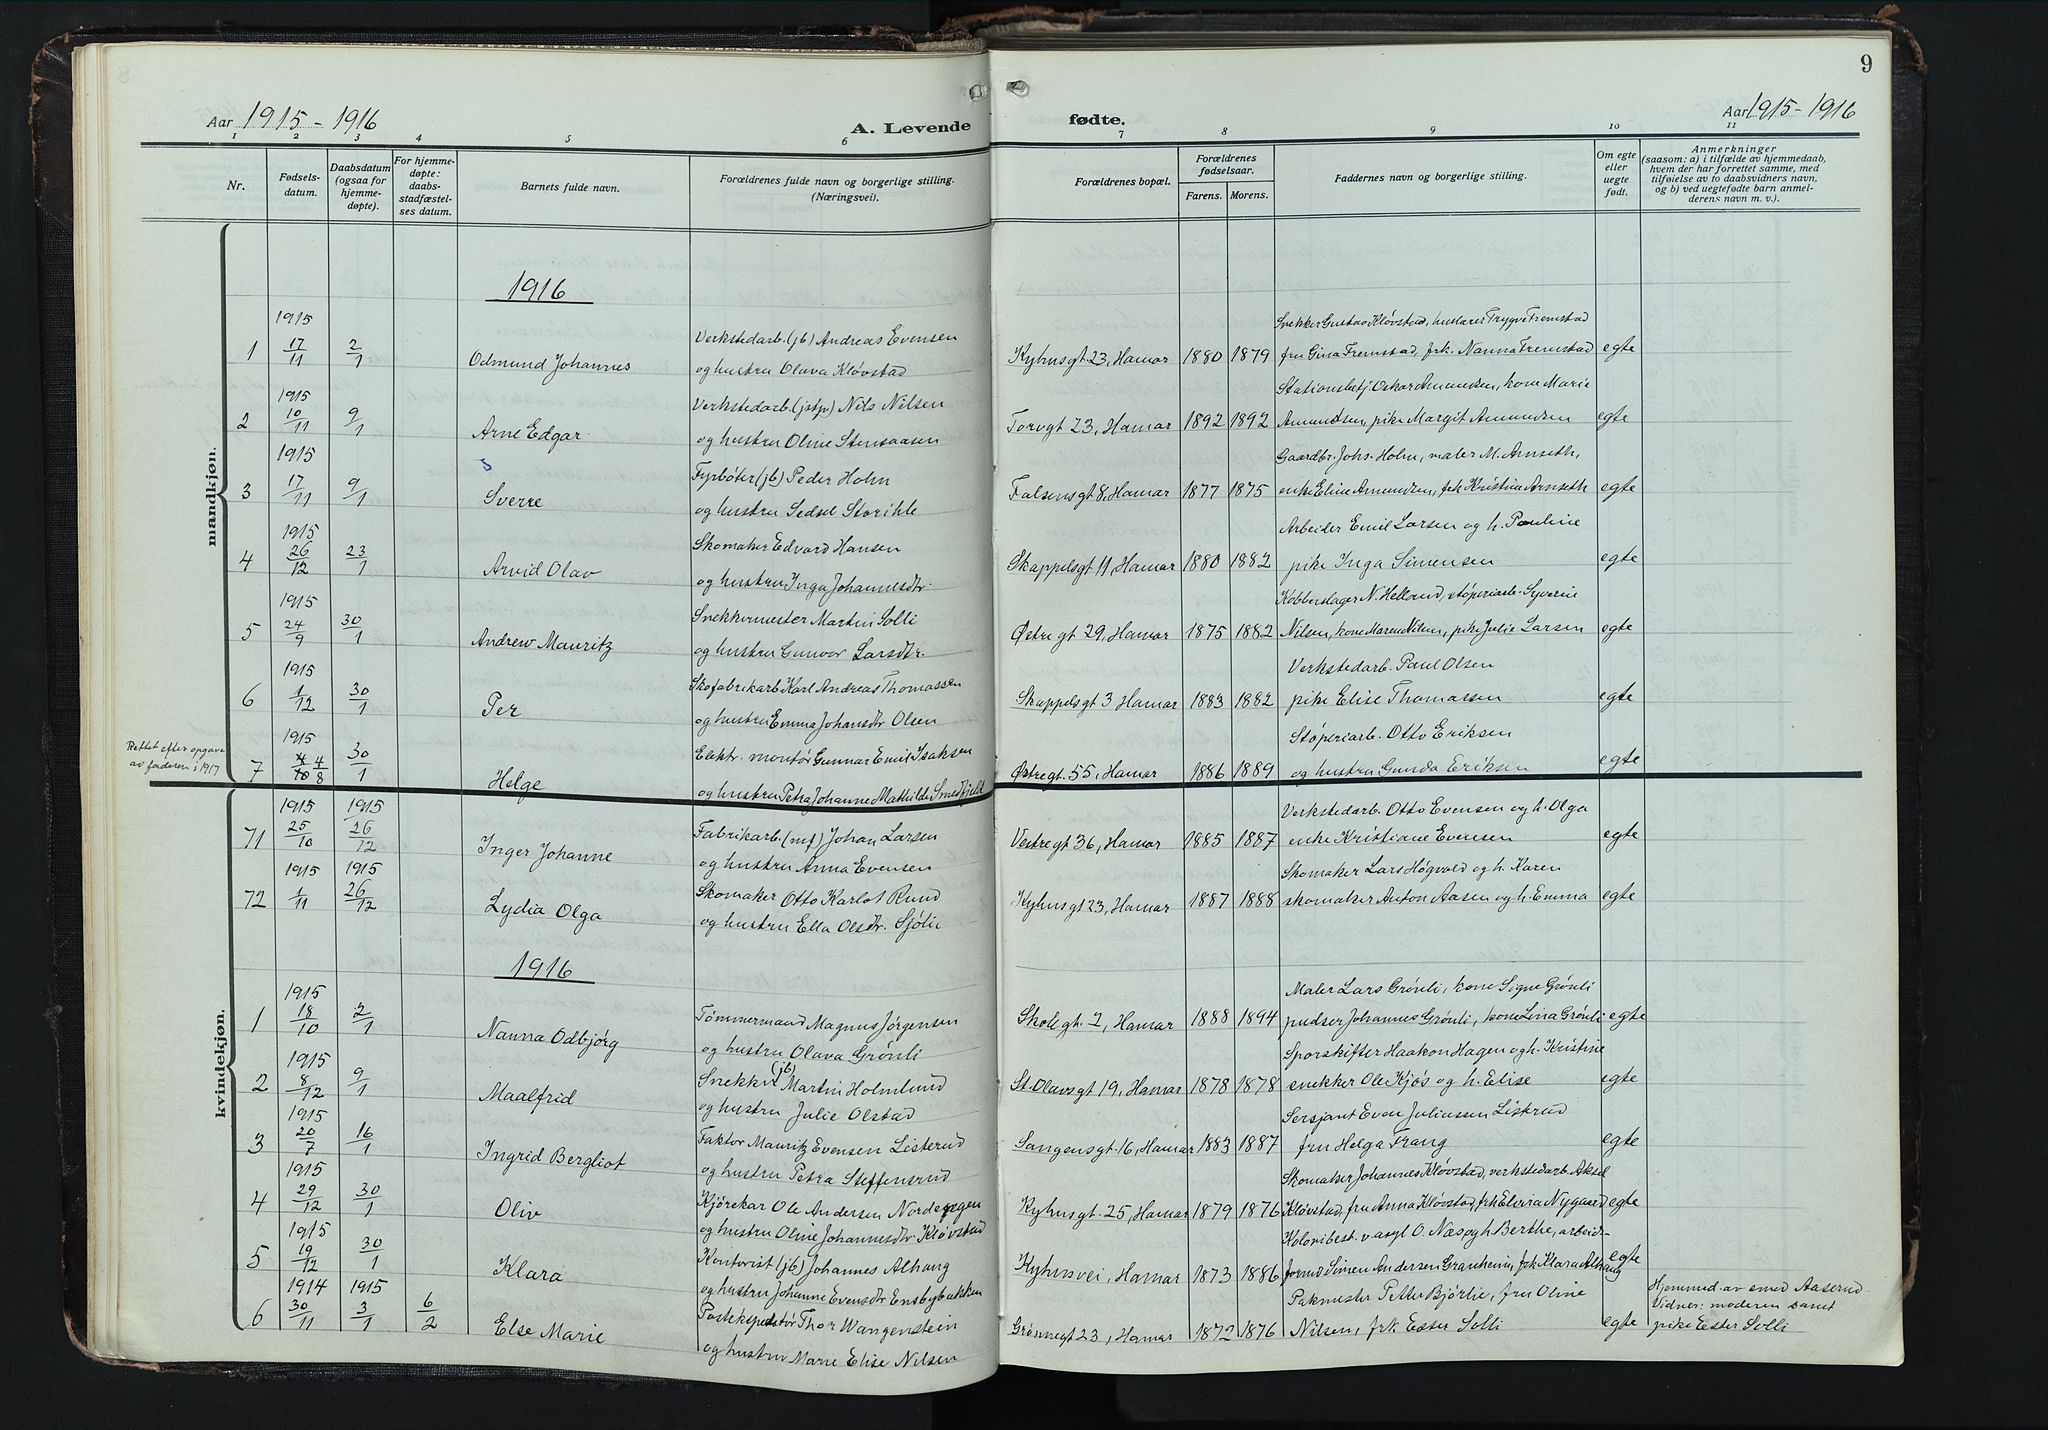 9
Aar 1915-1916
A. Levende
fødte.
Aar 1915-1916
1 2 3 4 5 6 7 8 9 10 11
Nr.
Fødsels-
datum.
Daabsdatum
(ogsaa for
hjemme-
døpte).
For hjemme-
døpte:
daabs-
stadfæstel-
ses datum.
Barnets fulde navn.
Forældrenes fulde navn og borgerlige stilling.
(Næringsvei).
Forældrenes bopæl.
Forældrenes
fødselsaar.
Farens. Morens.
Faddernes navn og borgerlige stilling.
Om egte
eller
uegte
født.
Anmerkninger
(saasom: a) i tilfælde av hjemmedaab,
hvem der har forrettet samme, med
tilføielse av to daabsvidners navn,
og b) ved uegtefødte barn anmel-
derens navn m. v.).
mandkjøn.
1916
1915 Verkstedarb. (jb) Andreas Evensen Snekker Gustav Kløvstad, huslærer Trygve Fremstad
1 17/11 2/1 Odmund Johannes og hustru Olava Kløvstad Kyhnsgt 23, Hamar 1880 1879 fru Gina Fremstad, frk. Nanna Fremstad egte
1915 Verkstedarb. (jstjv) Nils Nilsen Stationsbetj. Oskar Amundsen, kone Marie
2 10/11 9/1 Arne Edgar og hustru Oline Stensaasen Torvgt 23, Hamar 1892 1892 Amundsen, pike Margit Amundsen egte
1915 Fyrbøter (jb) Peder Holm Gaardbr. Johs. Holm, maler M. Arnseth,
3 17/11 9/1 Sverre og hustru Sedsel Storihle Falsensgt 8, Hamar 1877 1875 enke Eline Amundsen, frk Kristine Arnseth egte
1915 Skomaker Edvard Hansen Arbeider Emil Larsen og h. Pauline
4 26/12 23/1 Arvid Olav og hustru Inga Johannesdtr. Skappelsgt 11, Hamar 1880 1882 pike Inga Simensen egte
1915 Snekkermester Martin Solli Kobberslager N. Helland, støperiarb. Syverin
5 24/9 30/1 Andrew Mauritz og hustru Gunvor Larsdtr. Østregt 29, Hamar 1875 1882 Nilsen, kone Maren Nilsen, pike Julie Larsen egte
1915 Skofabrikarb Karl Andreas Thomassen Verkstedarb. Paul Olsen
6 1/12 30/1 Per og hustru Emma Johansdtr Olsen Skappelsgt 3 Hamar 1883 1882 pike Elise Thomassen egte
Rettet efter opgave
av faderen i 1917
1915 Elektr. montør Gunnar Emil Isaksen Støperiarb. Otto Eriksen
7 4/10 4/8 30/1 Helge og hustru Petra Johanne Mathilde Smedfjeld Østregt. 55, Hamar 1886 1889 og hustru Gunda Eriksen egte
kvindekjøn.
1915 1915 Fabrikarb. (mf) Johan Larsen Verkstedarb. Otto Evensen og h. Olga
71 25/10 26/12 Inger Johanne og hustru Anna Evensen Vestregt 36, Hamar 1885 1887 enke Kristiane Evensen egte
1915 1915 Skomaker Otto Karlot Rund Skomaker Lars Høgvold og h. Karen
72 1/11 26/12 Lydia Olga og hustru Ella Olsdtr. Sjølie Kyhnsgt 23, Hamar 1887 1888 skomaker Anton Aasen og h. Emma egte
1916
1915 Tømmermand Magnus Jørgensen Maler Lars Grønli, kone Signe Grønli
1 18/10 2/1 Nanna Odbjørg og hustru Olava Grønli Skolegt. 2, Hamar 1888 1894 pudser Johannes Grønli, kone Lina Grønli egte
1915 Snekker (jb) Martin Holmlund Sporskifter Haakon Hagen og h. Kristine
2 8/12 9/1 Maalfrid og hustru Julie Olstad St. Olavsgt 19, Hamar 1878 1878 snekker Ole Kjøs og h. Elise egte
1915 Faktor Mauritz Evensen Listerud Sersjant Even Juliussen Listrud
3 20/7 16/1 Ingrid Bergliot og hustru Petra Steffensrud Sangensgt. 16, Hamar 1883 1887 fru Helga Frang egte
1915 Kjørekar Ole Andersen Nordengen Skomaker Johannes Kløvstad, verkstedarb. Aksel
4 29/12 30/1 Oliv og hustru Oline Johannesdtr. Kløvstad Kyhnsgt. 25, Hamar 1879 1876 Kløvstad, fru Anna Kløvstad, frk Elvira Nygaard egte
1915 Kontorist (jb) Johannes Alhaug Kolonibest. v. asyl O. Næss og h. Berthe, arbeids-
5 19/12 30/1 Klara og hustru Johanne Evensdtr Ensbybakken Kyhnsvei, Hamar 1873 1886 formd Simen Andersen Granheim, frk Klara Alhaug egte
1914 1915 Postekspeditør Thor Wangenstein Pakmester Petter Bjørlie, fru Oline Hjemmed. av smed Aaserud
6 30/11 3/1 6/2 Else Marie og hustru Marie Elise Nilsen Grønnegt 23, Hamar 1872 1876 Nilsen, frk. Ester Solli egte Vidner: moderen samt
pike Ester Solli